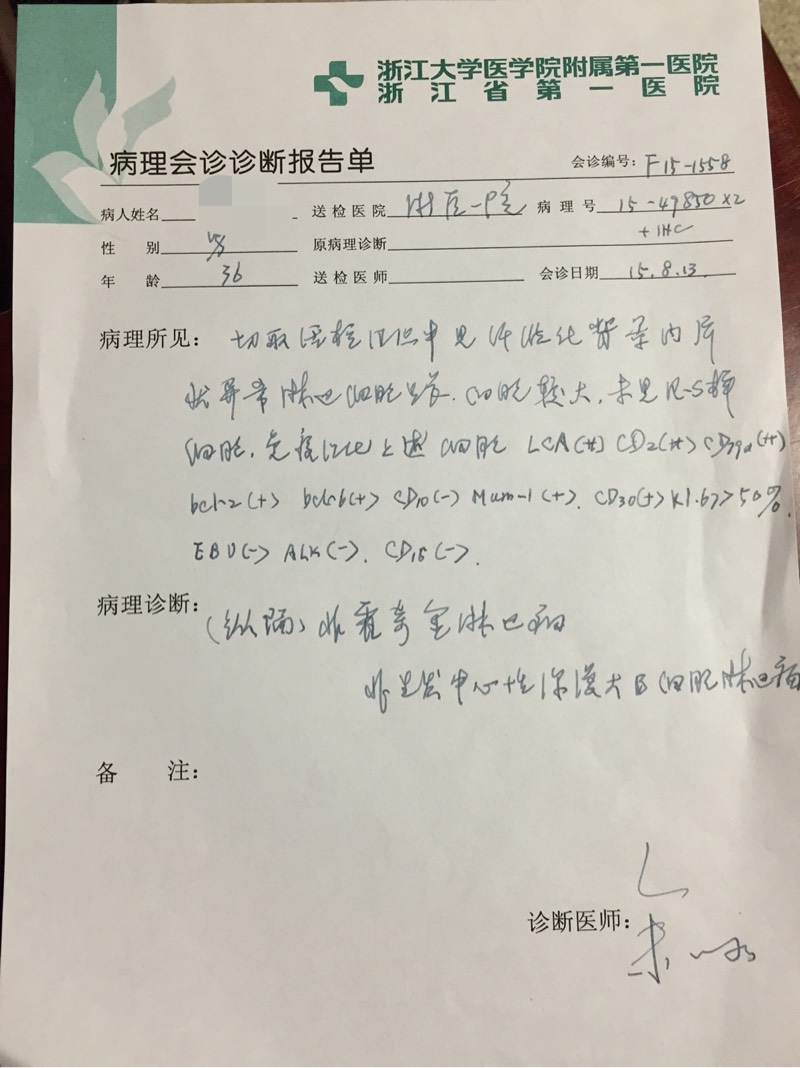 浙江大学医学院附属第一医院
浙江省第一医院
病理会诊诊断报告单 会诊编号: F15-1558
病人姓名 送检医院 浙医一院 病理号 15-49850 x2
+ IHC
性 别 原病理诊断
年 龄 36 送检医师 会诊日期 15.8.13.
病理所见: 切取 组织中见 背景内
状异常淋巴细胞 . 细胞较大, 未见R-S样
细胞. 免疫 上述细胞 LCA(++) CD79a(++)
bcl-2(+) bcl-6(+) CD10(-) Mum-1(+). CD30(+) Ki-67>50%.
EBV(-) ALK(-). CD15(-).
病理诊断: (纵隔) 非霍奇金淋巴瘤
非生发中心性弥漫大B细胞淋巴瘤
备 注:
诊断医师: